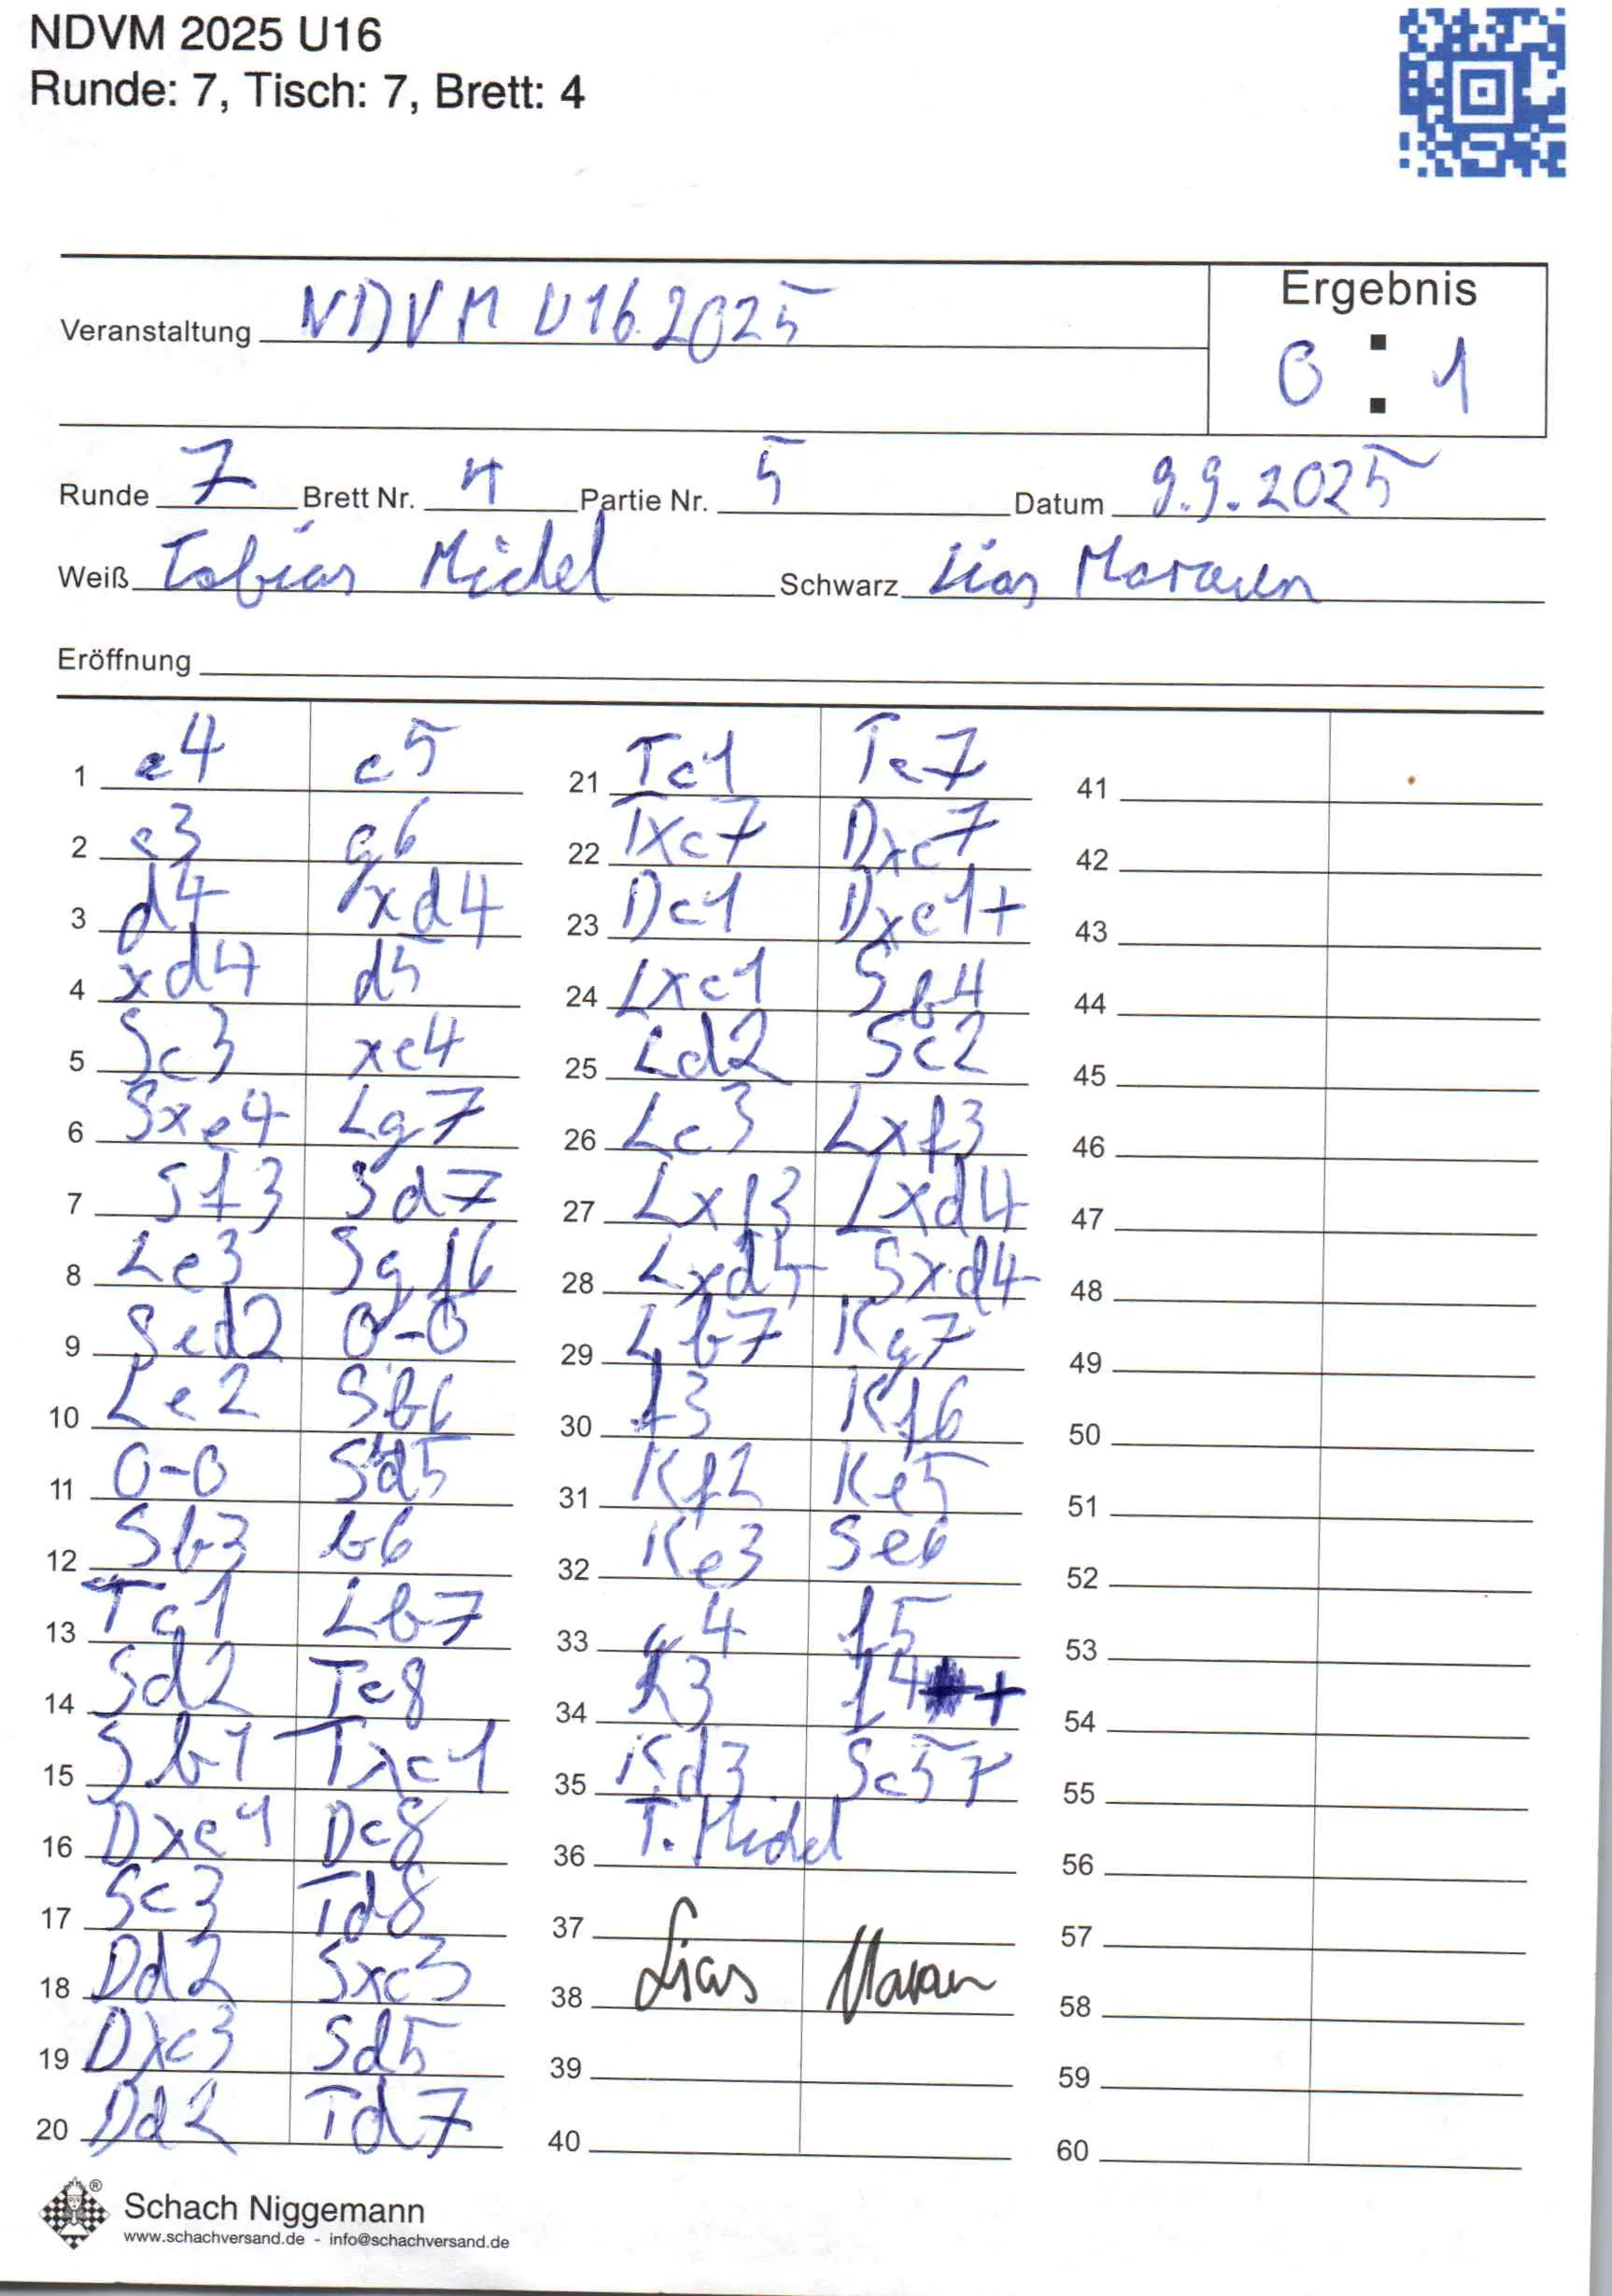 NDVM 2025 U16
Runde: 7, Tisch: 7, Brett: 4
Veranstaltung NDVM U16 2025
Ergebnis
0 : 1
Runde 7 Brett Nr. 4 Partie Nr. 5 Datum 9.9.2025
Weiß Tobias Michel Schwarz Lias
Eröffnung
1 e4 c5 21 Tc1 Tc7 41
2 c3 g6 22 Txc7 Dxc7 42
3 d4 xd4 23 Dc1 Dxc1+ 43
4 xd4 d5 24 Lxc1 Sb4 44
5 Sc3 xe4 25 Ld2 Sc2 45
6 Sxe4 Lg7 26 Lc3 Lxf3 46
7 Sf3 Sd7 27 Lxf3 Lxd4 47
8 Le3 Sgf6 28 Lxd4 Sxd4 48
9 Sed2 0-0 29 Lb7 Kg7 49
10 Le2 Sb6 30 f3 Kf6 50
11 0-0 Sd5 31 Kf2 Ke5 51
12 Sb3 b6 32 Ke3 Se6 52
13 Tc1 Lb7 33 g4 f5 53
14 Sd2 Tc8 34 h3 f4+ 54
15 Sb1 Txc1 35 Kd3 Sc5+ 55
16 Dxc1 Dc8 36 T. Michel 56
17 Sc3 Td8 37 57
18 Dd2 Sxc3 38 Lias 58
19 Dxc3 Sd5 39 59
20 Dd2 Td7 40 60
Schach Niggemann
www.schachversand.de - info@schachversand.de